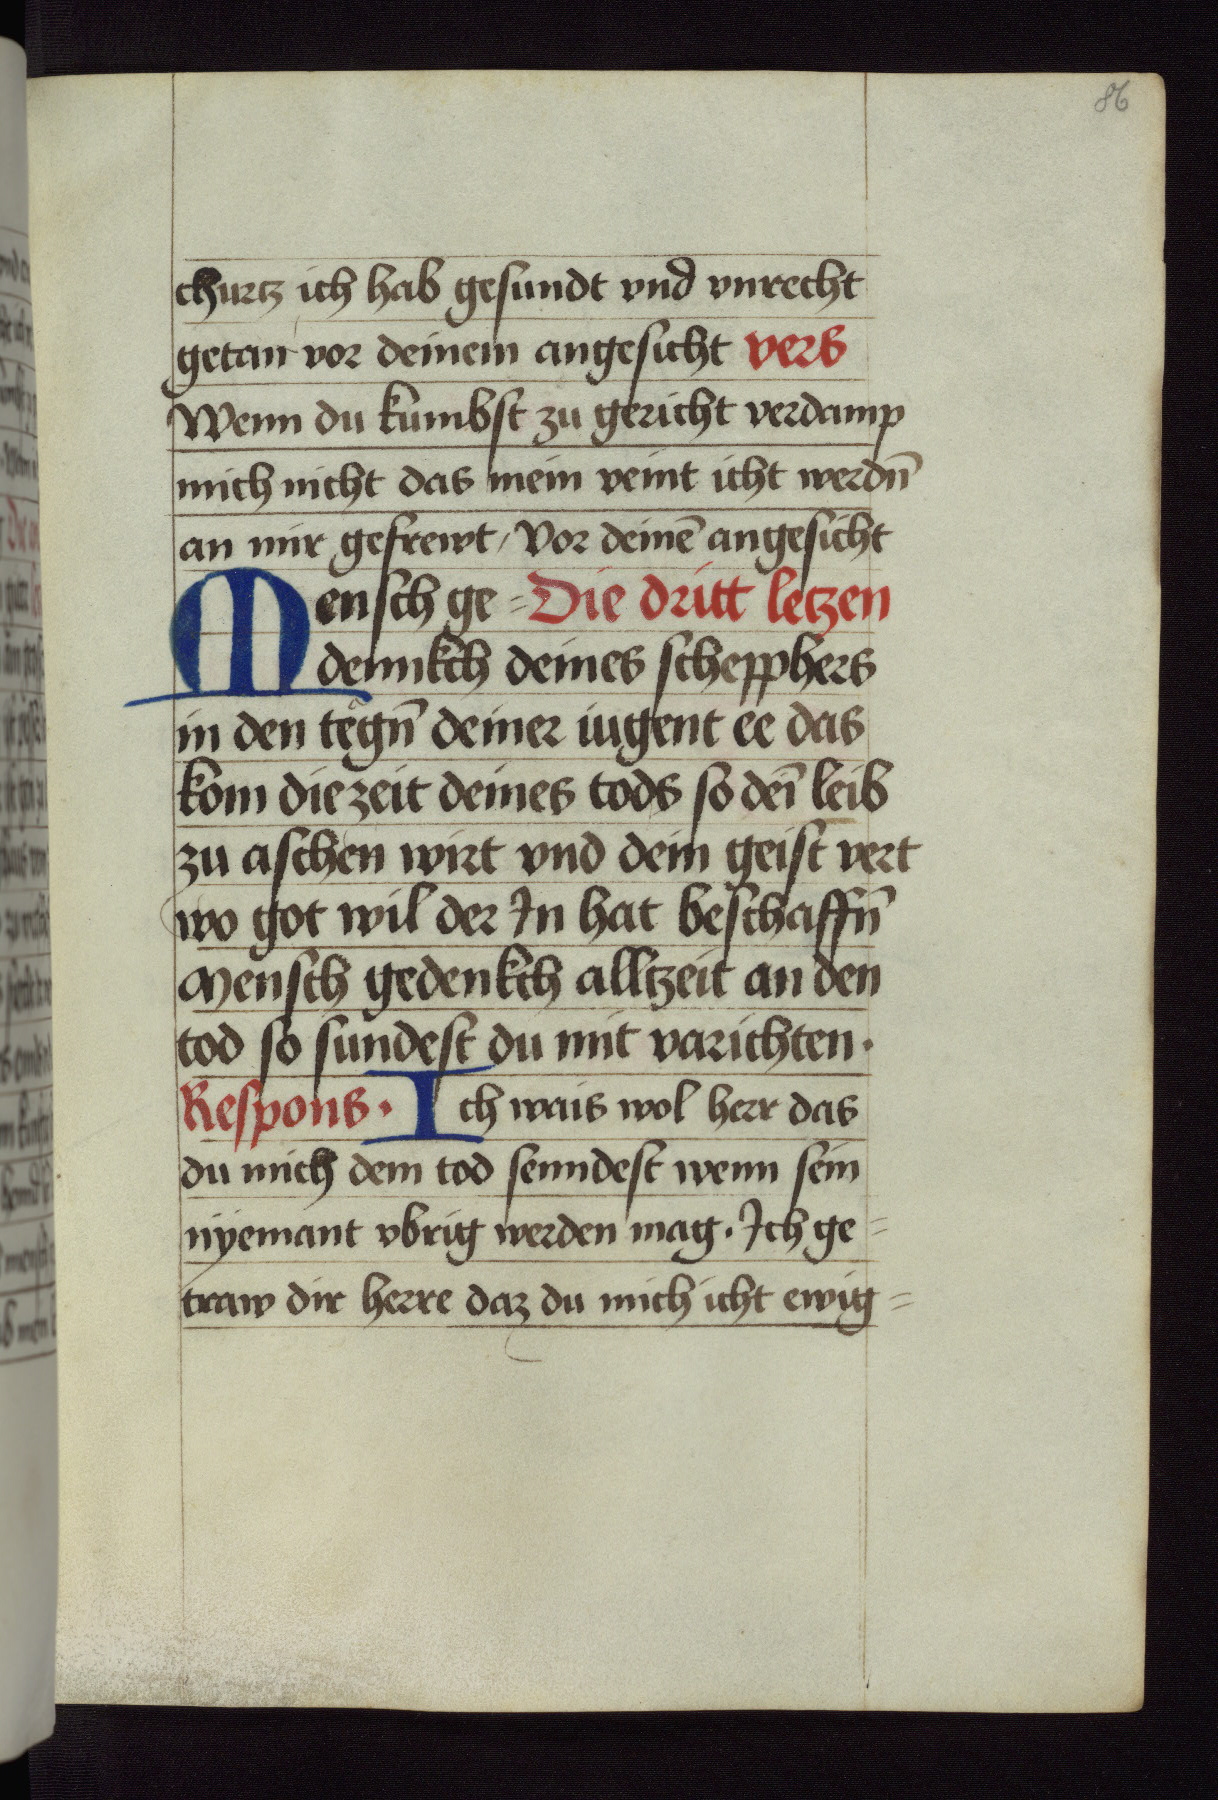 86
churtz ich hab gesundt vnd vnrecht
getan vor deinem angesicht vers
Wenn du kumbst zu gericht verdamp
mich nicht das mein veint icht werdn̄
an mir gefrewt / Vor deinē angesicht
Mensch ge = Die dritt letzen
dennkch deines schepphers
in den tegn̄ deiner iugent ee das
kom die zeit deines tods so dei̅ leib
zu aschen wirt vnd dein geist vert
wo got wil der In hat beschaffn̄
Mensch gedenkch alltzeit an den
tod so sundest du mit varichten ·
Respons · Ich wais wol herr das
du mich dem tod senndest wenn sein
nyemant vbrig werden mag · Ich ge =
traw dir herre daz du mich icht ewig =